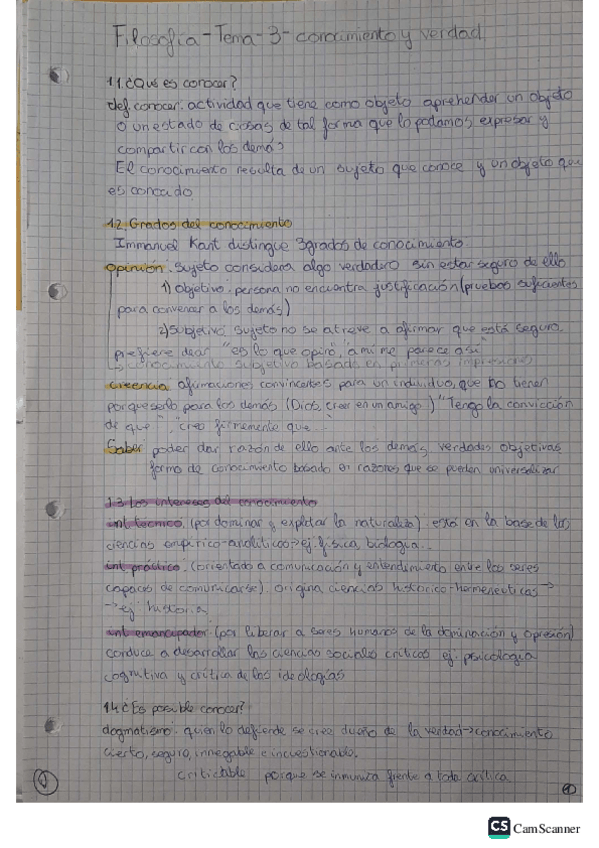 Filosofía - Tema - 3 - conocimiento y verdad
1.1. ¿Qué es conocer?
def. conocer: actividad que tiene como objeto aprehender un objeto
o un estado de cosas de tal forma que lo podamos expresar y
compartir con los demás
El conocimiento resulta de un sujeto que conoce y un objeto que
es conocido
1.2. Grados del conocimiento
Immanuel Kant distingue 3 grados de conocimiento
opinión: sujeto considera algo verdadero sin estar seguro de ello
1) objetivo: persona no encuentra justificación (pruebas suficientes
para convencer a los demás)
2) subjetivo: sujeto no se atreve a afirmar que está seguro,
prefiere decir "es lo que opino", "a mi me parece así"
conocimiento subjetivo basado en primeras impresiones
creencia: afirmaciones convincentes para un individuo, que no tienen
porque serlo para los demás (Dios, creer en un amigo) "Tengo la convicción
de que", "creo firmemente que..."
Saber: poder dar razón de ello ante los demás, verdades objetivas
forma de conocimiento basado en razones que se pueden universalizar
1.3. Los intereses del conocimiento
int técnico: (por dominar y explotar la naturaleza) está en la base de las
ciencias empírico-analíticas > ej. física, biología...
int. práctico: (orientado a comunicación y entendimiento entre los seres
capaces de comunicarse) origina ciencias histórico-hermeneuticas →
→ ej: historia
int emancipador: (por liberar a seres humanos de la dominación y opresión)
conduce a desarrollar las ciencias sociales críticas ej: psicología
cognitiva y crítica de las ideologías
1.4. ¿Es posible conocer?
dogmatismo: quien lo defiende se cree dueño de la verdad → conocimiento
cierto, seguro, innegable e incuestionable.
criticable porque se inmuniza frente a toda crítica
1
CS CamScanner